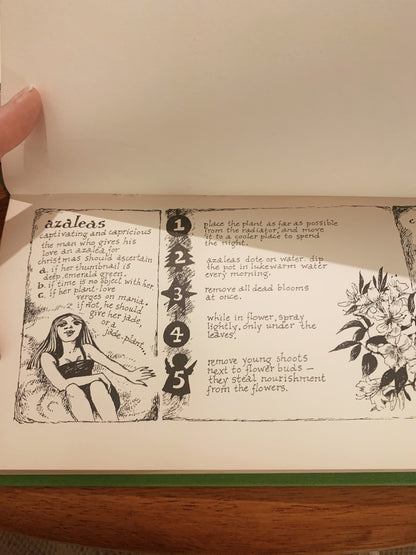 azaleas
captivating and capricious
the man who gives his
love an azalea for
christmas should ascertain
a. if her thumbnail is
deep emerald green.
b. if time is no object with her
c. if her plant-love
verges on mania.
if not, he should
give her jade
or a
jade-plant...
1
place the plant as far as possible
from the radiator, and move
it to a cooler place to spend
the night.
2
azaleas dote on water. dip
the pot in lukewarm water
every morning.
3
remove all dead blooms
at once.
4
while in flower, spray
lightly, only under the
leaves.
5
remove young shoots
next to flower buds –
they steal nourishment
from the flowers.